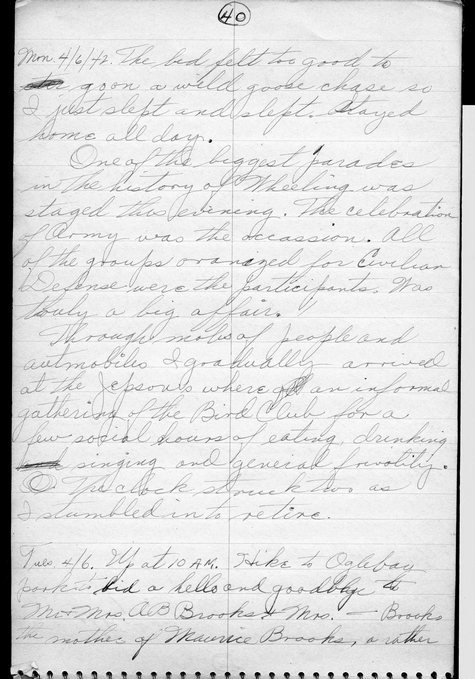 40
Mon. 4/6/42. The bed felt too good to
go on a wild goose chase so
I just slept and slept. Stayed
home all day.
One of the biggest parades
in the history of Wheeling was
staged this evening. The celebration
of Army was the occassion. All
of the groups oranized for Civilian
Defense were the participants. Was
truly a big affair.
Through mobs of people and
automobiles I gradually arrived
at the Jepson's where an informal
gathering of the Bird Club for a
few social hours of eating, drinking
singing and general frivolity.
The clock struck two as
I stumbled in to retire.
Tues. 4/6. Up at 10 A.M. Hike to Oglebay
park to bid a hello and goodbye to
Mr + Mrs. A B Brooks + Mrs. — Brooks
the mother of Maurice Brooks, a rather